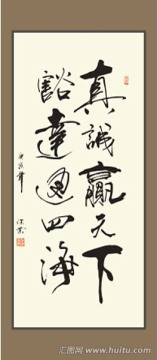 真誠贏天下
豁達通四海
汇图网 www.huitu.com